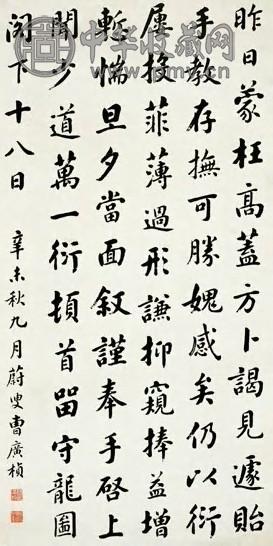 昨日蒙枉高蓋方卜謁見遽貽
手教存撫可勝媿感矣仍以衍
屢菲薄過形謙抑窺捧益增
慙惴旦夕當面叙謹奉手啓上
聞少道萬一衍頓首留守龍圖
閣下十八日
辛未秋九月蔚叟曹廣楨
中华收藏网